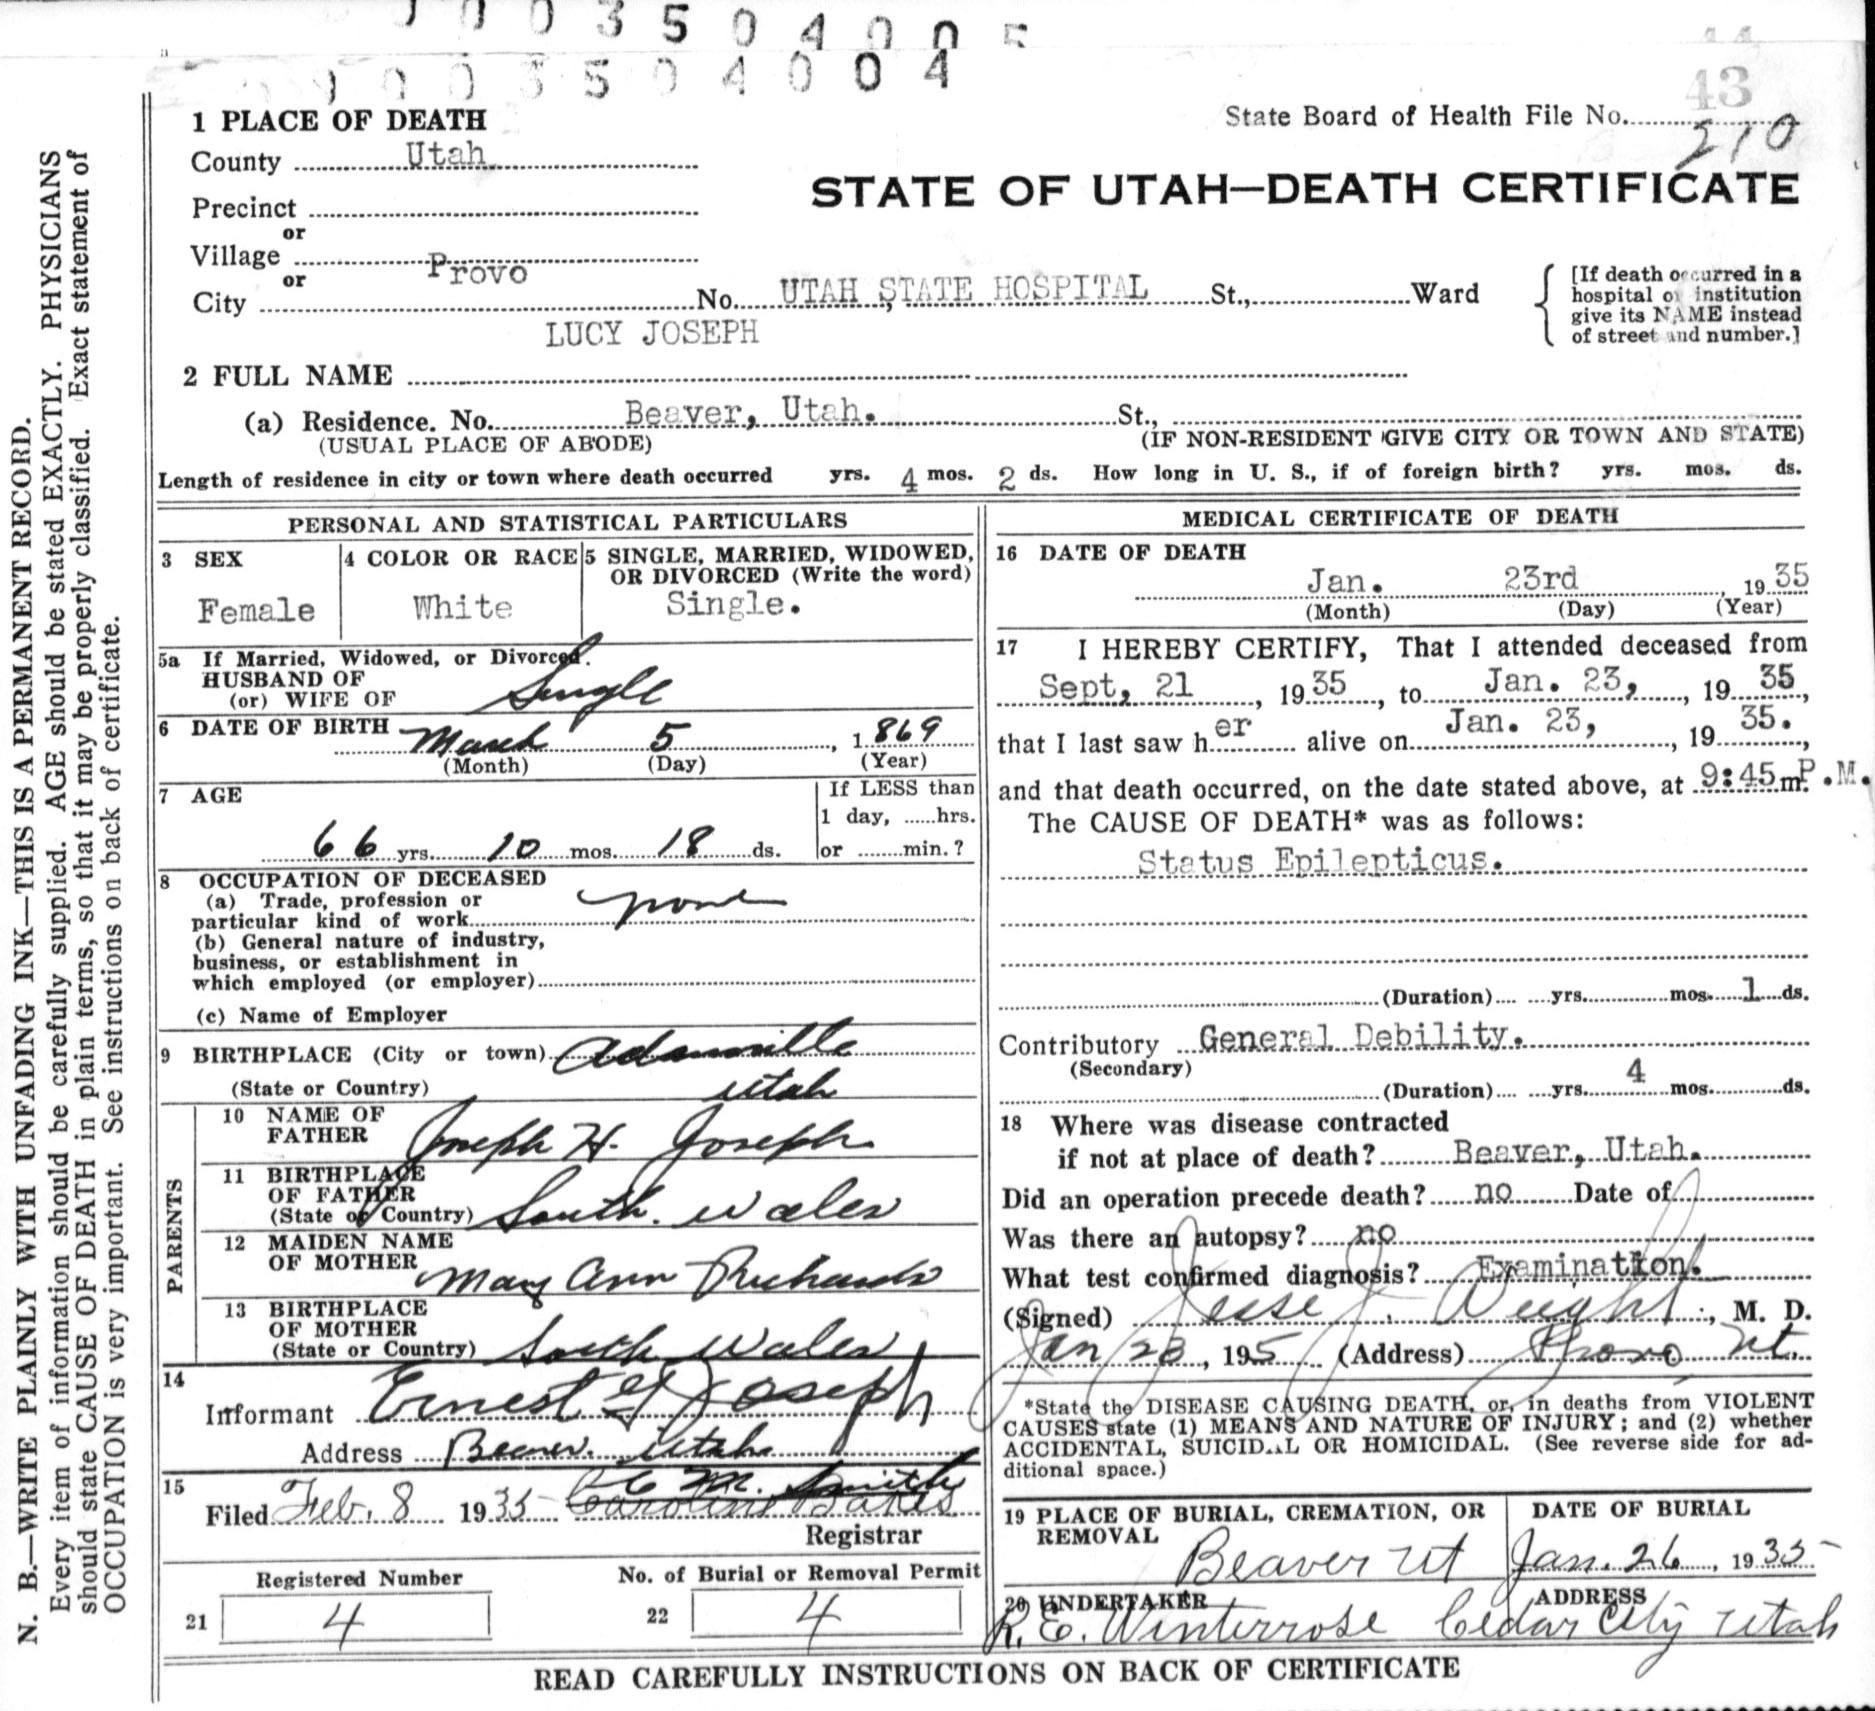 003504005
003504004
43
State Board of Health File No. 210
1 PLACE OF DEATH
County Utah
STATE OF UTAH—DEATH CERTIFICATE
Precinct
or
Village
or
City Provo No. UTAH STATE HOSPITAL St., Ward
[If death occurred in a
hospital or institution
give its NAME instead
of street and number.]
LUCY JOSEPH
2 FULL NAME
(a) Residence. No. Beaver, Utah. St.,
(USUAL PLACE OF ABODE) (IF NON-RESIDENT GIVE CITY OR TOWN AND STATE)
Length of residence in city or town where death occurred yrs. 4 mos. 2 ds. How long in U. S., if of foreign birth? yrs. mos. ds.
PERSONAL AND STATISTICAL PARTICULARS
3 SEX
Female
4 COLOR OR RACE
White
5 SINGLE, MARRIED, WIDOWED,
OR DIVORCED (Write the word)
Single.
5a If Married, Widowed, or Divorced.
HUSBAND OF
(or) WIFE OF Single
6 DATE OF BIRTH March 5, 1869
(Month) (Day) (Year)
7 AGE
66 yrs. 10 mos. 18 ds.
If LESS than
1 day, hrs.
or min.?
8 OCCUPATION OF DECEASED
(a) Trade, profession or
particular kind of work none
(b) General nature of industry,
business, or establishment in
which employed (or employer)
(c) Name of Employer
9 BIRTHPLACE (City or town) Adamsville
(State or Country) Utah
PARENTS
10 NAME OF
FATHER Joseph H. Joseph
11 BIRTHPLACE
OF FATHER
(State or Country) South. Wales
12 MAIDEN NAME
OF MOTHER Mary Ann Richards
13 BIRTHPLACE
OF MOTHER
(State or Country) South Wales
14
Informant Ernest G Joseph
Address Beaver. Utah
15
C M. Smith
Filed Feb. 8 1935 Caroline Bakes
Registrar
Registered Number
21 4
No. of Burial or Removal Permit
22 4
MEDICAL CERTIFICATE OF DEATH
16 DATE OF DEATH
Jan. 23rd, 1935
(Month) (Day) (Year)
17 I HEREBY CERTIFY, That I attended deceased from
Sept, 21, 1935, to Jan. 23, , 1935,
that I last saw her alive on Jan. 23, , 1935. ,
and that death occurred, on the date stated above, at 9:45 m. P.M.
The CAUSE OF DEATH* was as follows:
Status Epilepticus.
(Duration) yrs. mos. 1 ds.
Contributory General Debility.
(Secondary)
(Duration) yrs. 4 mos. ds.
18 Where was disease contracted
if not at place of death? Beaver, Utah.
Did an operation precede death? no Date of
Was there an autopsy? no
What test confirmed diagnosis? Examination.
(Signed) Jesse J. Weight, M. D.
Jan 23, 195 (Address) Provo Ut.
*State the DISEASE CAUSING DEATH, or, in deaths from VIOLENT
CAUSES state (1) MEANS AND NATURE OF INJURY; and (2) whether
ACCIDENTAL, SUICIDAL OR HOMICIDAL. (See reverse side for ad-
ditional space.)
19 PLACE OF BURIAL, CREMATION, OR
REMOVAL
Beaver Ut
DATE OF BURIAL
Jan. 26, 1935
20 UNDERTAKER
R. E. Winterrose
ADDRESS
Cedar City Utah
READ CAREFULLY INSTRUCTIONS ON BACK OF CERTIFICATE
N. B.—WRITE PLAINLY WITH UNFADING INK—THIS IS A PERMANENT RECORD.
Every item of information should be carefully supplied. AGE should be stated EXACTLY. PHYSICIANS
should state CAUSE OF DEATH in plain terms, so that it may be properly classified. Exact statement of
OCCUPATION is very important. See instructions on back of certificate.